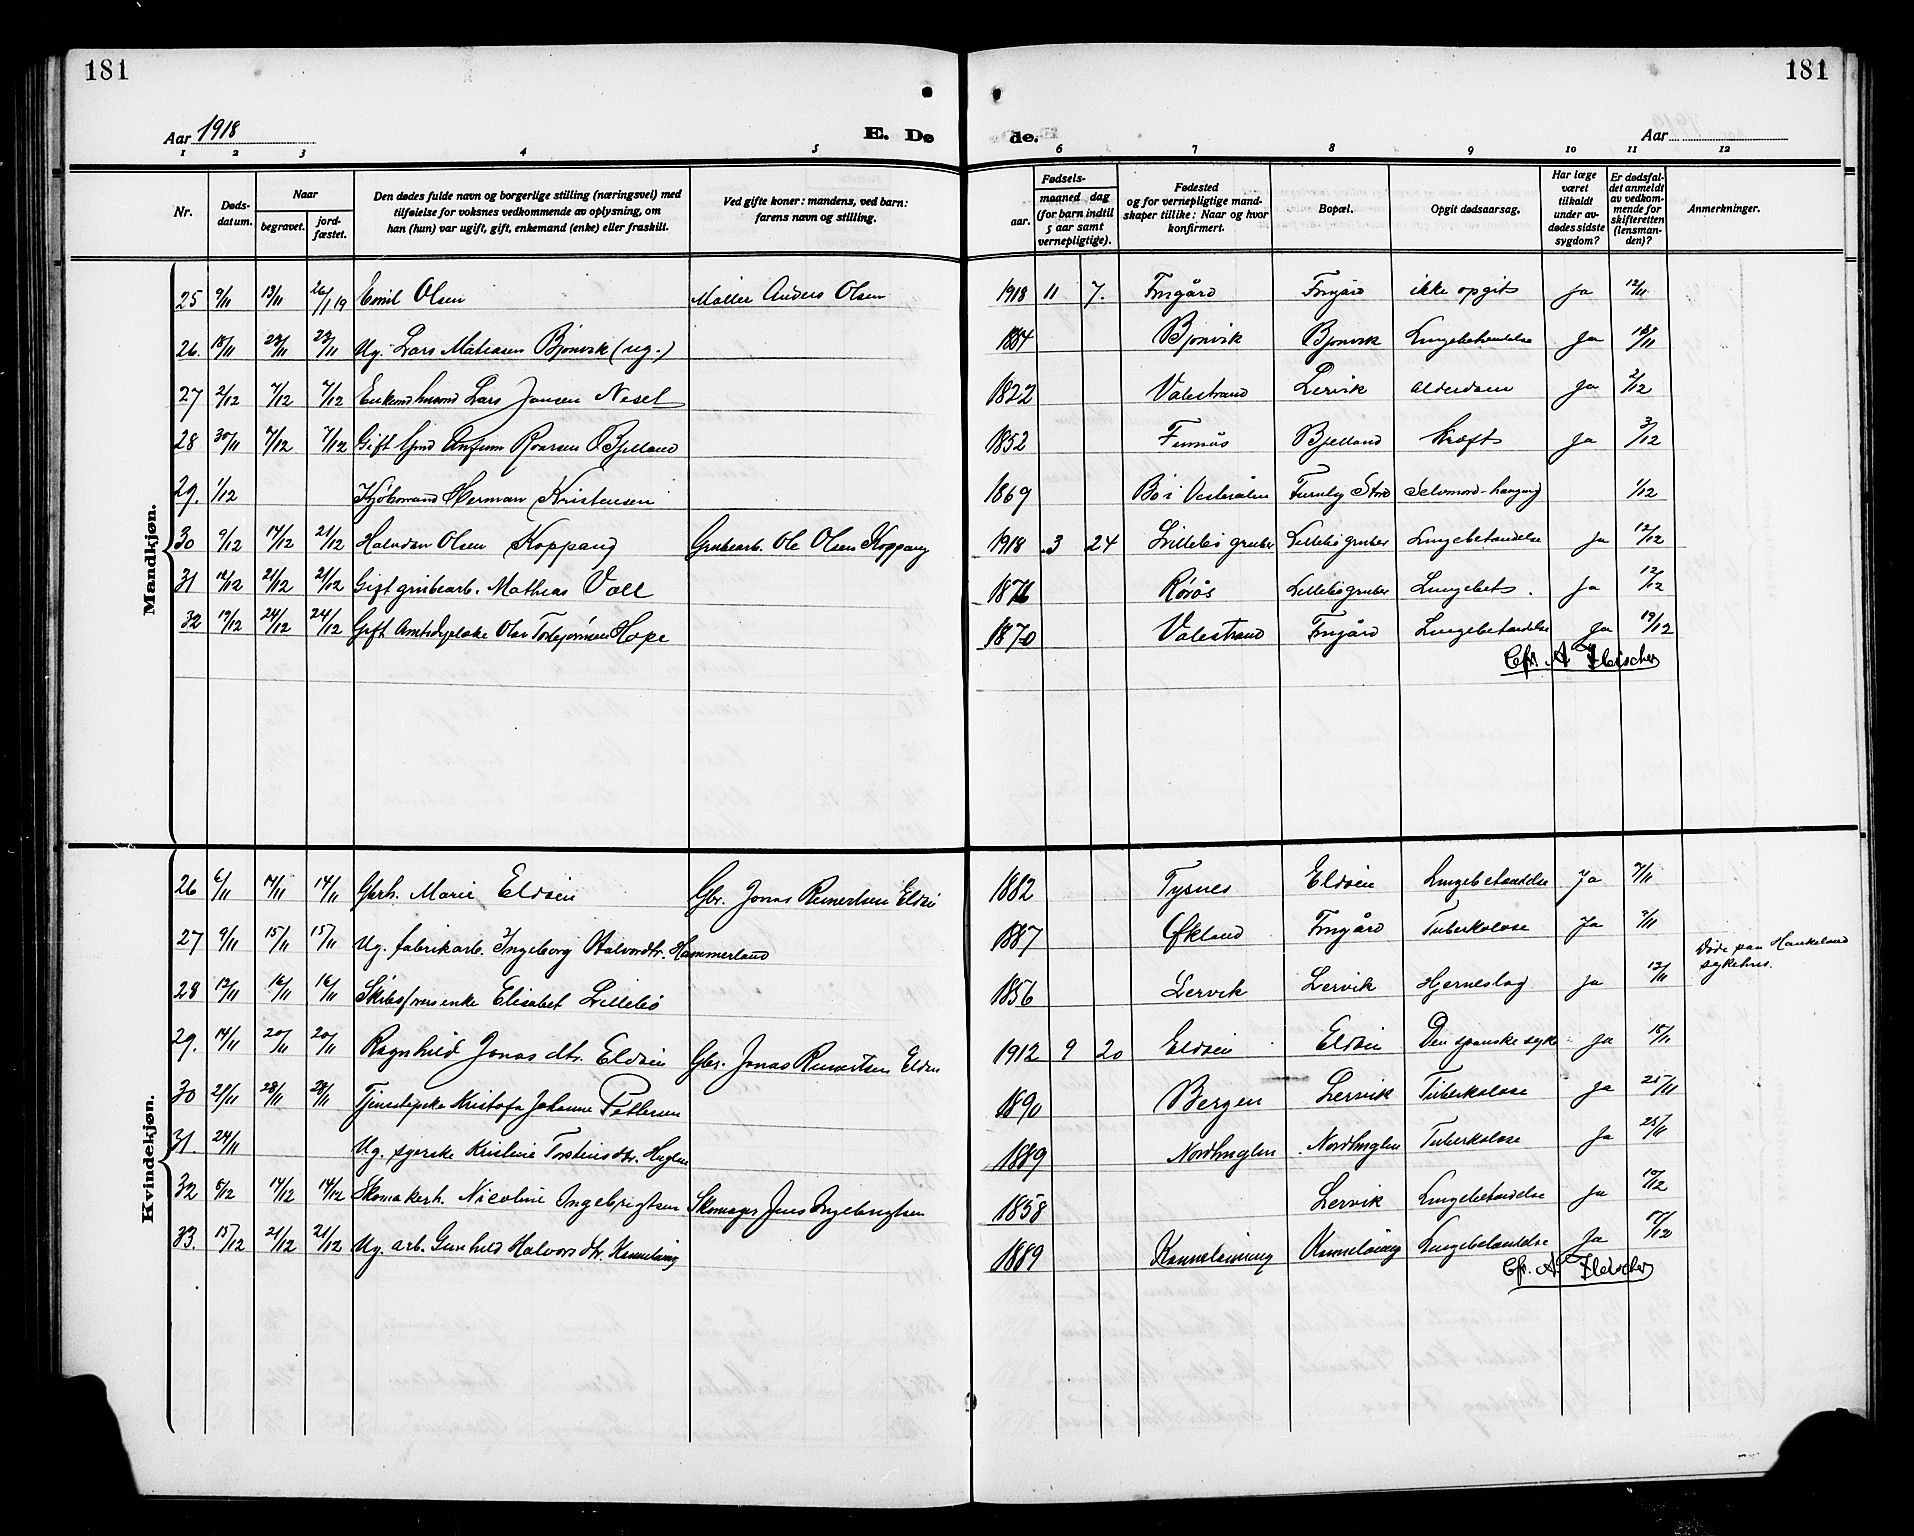 181
181
Aar 1918
E. Dø
de.
Aar
1 2 3 4 5 6 7 8 9 10 11 12
Nr.
Døds-
datum.
Naar
begravet.
jord-
fæstet.
Den dødes fulde navn og borgerlige stilling (næringsvei) med
tilføielse for voksnes vedkommende av oplysning, om
han (hun) var ugift, gift, enkemand (enke) eller fraskilt.
Ved gifte koner: mandens, ved barn:
farens navn og stilling.
Fødsels-
aar.
maaned dag
(for barn indtil
5 aar samt
vernepligtige).
Fødested
og for vernepligtige mand-
skaper tillike: Naar og hvor
konfirmert.
Bopæl.
Opgit dødsaarsag.
Har læge
været
tilkaldt
under av-
dødes sidste
sygdom?
Er dødsfal-
det anmeldt
av vedkom-
mende for
skifteretten
(lensman-
den)?
Anmerkninger.
Mandkjøn.
25 9/11 13/11 26/1 19 Emil Olsen Møller Anders Olsen 1918 11 7. Fmgård Fmgård ikke opgit Ja 12/11
26. 18/11 23/11 23/11 Ug. Lars Matiasen Bjonvik (ug.) 1884 Bjonvik Bjonvik Lungebetændelse Ja 18/11
27 2/12 7/12 7/12 Enkemand Lars Jansen Nesel 1822 Valestrand Lervik alderdom Ja 2/12
28 30/11 7/12 7/12 Gift Roarsen Bjelland 1852 Bjelland Kræft Ja 3/12
29. 1/12 Kjøbmand Herman Kristensen 1869 Bø i Vesterålen Selvmord-hængng 1/12
30 9/12 14/12 21/12 Halvdan Olsen Koppang Grubearb. Ole Olsen Koppang 1918 3 24 Lillebø gruber Lillebø gruber Lungebetændelse Ja 12/12
31 12/12 21/12 21/12 Gift grubearb. Mathias Voll Røros Lillebø gruber Lungebet. Ja 12/12
32 19/12 24/12 24/12 Gift Olai Hope 1870 Valestrand Fmgård Lungebetændelse Ja 19/12
Cfr. A Fleischer
Kvindekjøn.
26 6/11 14/11 14/11 Gbrh. Marie Eldøen Gbr. Jonas Reinertsen Eldøi 1882 Tysnes Eldøen Lungebetændelse Ja 7/11
27 9/11 15/11 15/11 Ug. fabrikarb. Ingeborg Halvordtr. Hammerland 1887 Økland Fmgård Tuberkolose Ja 9/11
Døde paa Haukeland
sykehus.
28 12/11 16/11 16/11 Skibsførerenke Elisabet Lillebø 1856 Lervik Lervik Hjerneslag Ja 13/11
29. 14/11 20/11 20/11 Ragnhild Jonas dtr. Eldøen Gbr. Jonas Reinertsen Eldøen 1912 9 20 Eldøen Eldøen Den spanske syke Ja 15/11
30 21/11 28/11 28/11 Tjenestepike Kristofa Johanne Pettersen 1890 Bergen Lervik Tuberkolose Ja 25/11
31. 24/11 Ug. syerske Kristine Torsteins dtr. Huglen 1889 Nordhuglen Nordhuglen Tuberkolose Ja 25/11
32 8/12 14/12 14/12 Skomakerh. Nicoline Ingebrigtsen Skomager Jens Ingebrigtsen 1858 Lervik Lungebetændelse Ja 10/12
33 15/12 21/12 21/12 Ug. arb. Gunhild Halvors dtr. Kanneløning 1889 Kanneløning Kanneløning Lungebetændelse Ja 17/12
Cfr. A. Fleischer